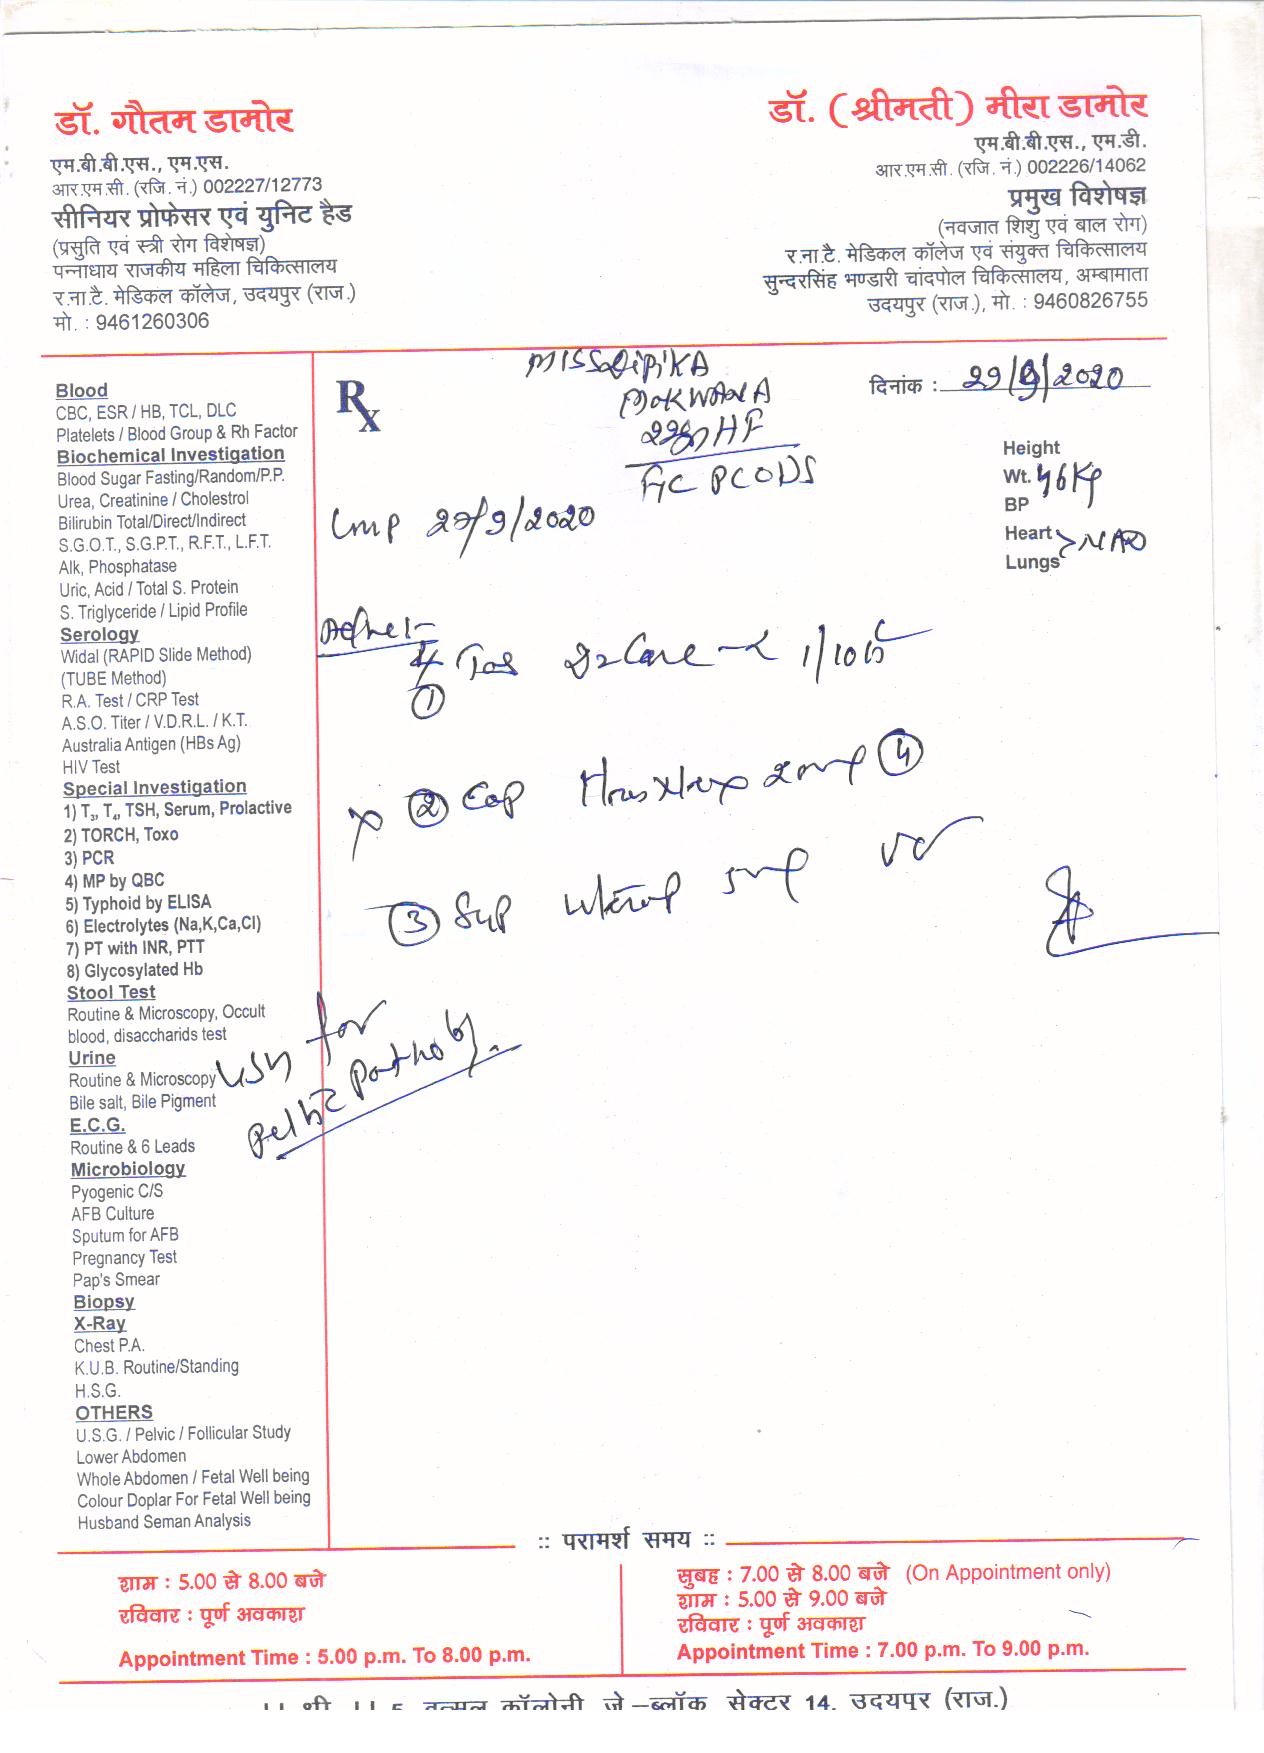 डॉ. गौतम डामोर
एम.बी.बी.एस., एम.एस.
आर.एम.सी. (रजि. नं.) 002227/12773
सीनियर प्रोफेसर एवं युनिट हैड
(प्रसुति एवं स्त्री रोग विशेषज्ञ)
पन्नाधाय राजकीय महिला चिकित्सालय
र.ना.टै. मेडिकल कॉलेज, उदयपुर (राज.)
मो. : 9461260306
डॉ. (श्रीमती) मीरा डामोर
एम.बी.बी.एस., एम.डी.
आर.एम.सी. (रजि. नं.) 002226/14062
प्रमुख विशेषज्ञ
(नवजात शिशु एवं बाल रोग)
र.ना.टै. मेडिकल कॉलेज एवं संयुक्त चिकित्सालय
सुन्दरसिंह भण्डारी चांदपोल चिकित्सालय, अम्बामाता
उदयपुर (राज.), मो. : 9460826755
Blood
CBC, ESR / HB, TCL, DLC
Platelets / Blood Group & Rh Factor
Biochemical Investigation
Blood Sugar Fasting/Random/P.P.
Urea, Creatinine / Cholestrol
Bilirubin Total/Direct/Indirect
S.G.O.T., S.G.P.T., R.F.T., L.F.T.
Alk, Phosphatase
Uric, Acid / Total S. Protein
S. Triglyceride / Lipid Profile
Serology
Widal (RAPID Slide Method)
(TUBE Method)
R.A. Test / CRP Test
A.S.O. Titer / V.D.R.L. / K.T.
Australia Antigen (HBs Ag)
HIV Test
Special Investigation
1) T3, T4, TSH, Serum, Prolactive
2) TORCH, Toxo
3) PCR
4) MP by QBC
5) Typhoid by ELISA
6) Electrolytes (Na,K,Ca,Cl)
7) PT with INR, PTT
8) Glycosylated Hb
Stool Test
Routine & Microscopy, Occult
blood, disaccharids test
Urine
Routine & Microscopy
Bile salt, Bile Pigment
E.C.G.
Routine & 6 Leads
Microbiology
Pyogenic C/S
AFB Culture
Sputum for AFB
Pregnancy Test
Pap's Smear
Biopsy
X-Ray
Chest P.A.
K.U.B. Routine/Standing
H.S.G.
OTHERS
U.S.G. / Pelvic / Follicular Study
Lower Abdomen
Whole Abdomen / Fetal Well being
Colour Doplar For Fetal Well being
Husband Seman Analysis
Rx
MISS DIPIKA
MOKWANA
HF
PCODS
दिनांक : 29/9/2020
Height
Wt. 46Kg
BP
Heart
Lungs NAD
LMP 27/9/2020
①
② Cap ④
③ Syp
USG for
pelvic pathology
:: परामर्श समय ::
शाम : 5.00 से 8.00 बजे
रविवार : पूर्ण अवकाश
Appointment Time : 5.00 p.m. To 8.00 p.m.
सुबह : 7.00 से 8.00 बजे (On Appointment only)
शाम : 5.00 से 9.00 बजे
रविवार : पूर्ण अवकाश
Appointment Time : 7.00 p.m. To 9.00 p.m.
कॉलोनी जे–ब्लॉक सेक्टर 14, उदयपुर (राज.)